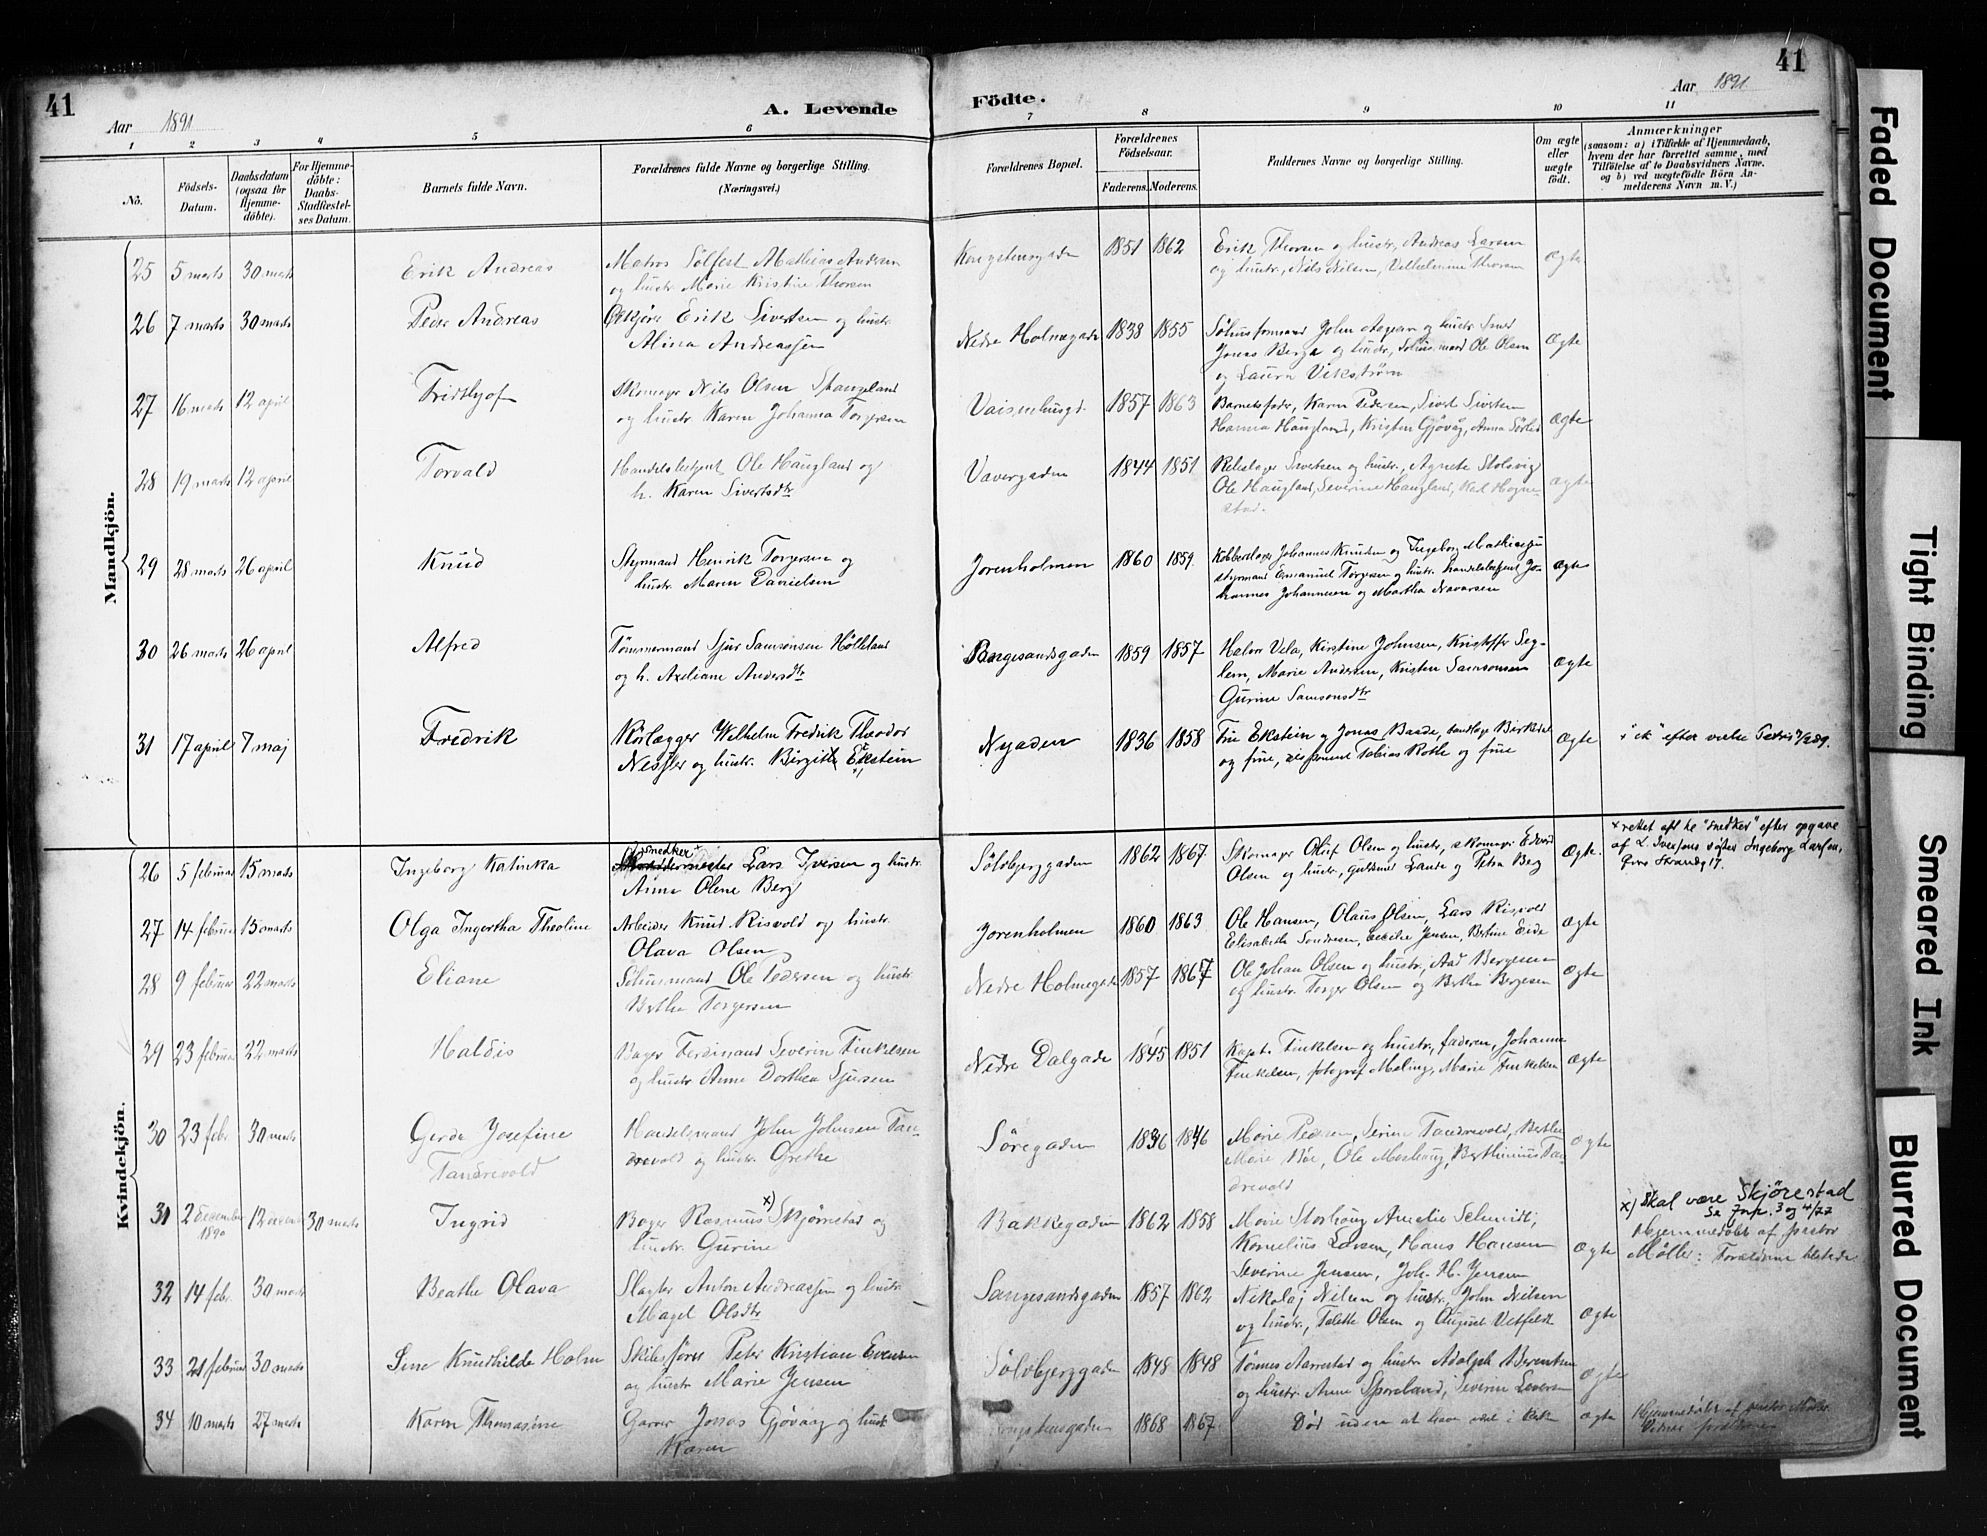 41
Aar 1891
A. Levende
Födte.
Aar 1891
41
1 2 3 4 5 6 7 8 9 10 11
No.
Födsels-
Datum.
Daabsdatum
(ogsaa for
Hjemme-
döbte).
For Hjemme-
döbte:
Daabs-
Stadfæstel-
ses Datum.
Barnets fulde Navn.
Forældrenes fulde Navne og borgerlige Stilling.
(Næringsvei.)
Forældrenes Bopæl.
Forældrenes
Födselsaar.
Faderens. Moderens.
Faddernes Navne og borgerlige Stilling.
Om ægte
eller
uægte
födt.
Anmærkninger
(saasom: a) i Tilfælde af Hjemmedaab,
hvem der har forrettet samme, med
Tilföielse af to Daabsvidners Navne.
og b) ved uægtefödte Börn An-
melderens Navn m. V.)
Mandkjön.
25 5 marts 30 marts Erik Andreas
Matros Sølfest Mathias Andersen
og hustr. Marie Kristine Thorsen
Kongstensgaden 1851 1862
Erik Thorsen og hustr, Andreas Larsen
og hustr, Nils Nilsen, Velhelmine Thorsen
ægte
26 7 marts 30 marts Peder Andreas
Erik Sivertsen og hustr.
Alina Andreassen
Nedre Holmegade 1838 1855
John Aagesen og hustr Smed
Jonas Berga og hustr, Ole Olsen
og Laura Vikstrøm
ægte
27 16 marts 12 april Fridthjof
Skomager Nils Olsen Spangeland
og hustr Karen Johanna Torgersen
Vaisenhusgd. 1857 1863
Barnets fader, Karen Pedersen, Sivert Sivertsen
Hanna Haugland, Kristen Gjövåg, Anna
ægte
28 19 marts 12 april Torvald
Handelsbetjent Ole Haugland og
h. Karen Sivertsdtr
Vævergaden 1844 1851
Rebslager Sivertsen og hustr., Agnete Stolsvig
Ole Haugland, Severine Haugland, Karl Hogne-
stad.
ægte
29 28 marts 26 april Knud
Styrmand Henrik Torgersen og
hustr. Maren Danielsen
Jorenholmen 1860 1859.
Kobberslager Johannes Knudsen og Ingeborg Mathiassen
styrmand Emanuel Torgersen og hustr. handelsbetjent Jo-
hannes Johannesen og Martha
ægte
30 26 marts 26 april Alfred
Tømmermand Sjur Samsonsen Hölleland
og h. Axeliane Andersdtr
Bangesandsgaden 1859 1857
Halvor Vela, Kirstine Johnsen, Kristoffer Seg-
lem, Marie Andersen, Kristen Samsonsen
Gurine Samsonsdtr
ægte
31 17 april 7 maj Fredrik
Körlægger Wilhelm Fredrik Theodor
Nessler og hustr. Birgitte Ekstein
Nygaden 1836 1858
Fru Ekstein og Jonas Baade, Birkedal
og frue, Tobias Rothe og frue
ægte
Kvindekjön.
26 5 februar 15 marts Ingeborg Katinka
Snedker x
Lars Iversen og hustr.
Anne Olene Berg
Sölvberggaden 1862 1867
Skomager Oluf Olsen og hustr, skomager Edvard
Olsen og hustr., guldsmed Lande og Petra Berg
ægte.
x rettet "Snedker" efter opgave
af L. Iversens søster Ingeborg Larsen,
Strandg 17.
27 14 februar 15 marts Olga Ingertha Theoline
Arbeider Knud Risvold og hustr.
Olava Olsen
Jorenholmen 1860 1863
Ole Hansen, Olaus Olsen, Lars Risvold
Elisabeth Sondresen, Cecilie Jensen, Bertine Eide
ægte
28 9 februar 22 marts Eliane
Ole Pedersen og hustr.
Berthe Torgersen
Nedre Holmegade 1857 1867
Ole Johan Olsen og hustr, Aad Bergesen
og hustr. Torger Olsen og Berthe Bergesen
ægte
29 23 februar 22 marts Haldis
Bager Ferdinand Severin Finkelsen
og hustr Anne Dorthea Sjursen
Nedre Dalgade 1845 1851
Kapt. Finkelsen og hustr, faderen, Johanne
Finkelsen, fotograf Maling, Marie Finkelsen
ægte
30 23 febr. 30 marts Gerda Josefine
Tandrevold
Handelsmand John Johnsen Tan-
drevold og hustr. Grethe
Söregaden 1836 1846
Marie Pedersen, Serine Tandrevold, Berthe
Marie Böe, Ole Moshaug, Berthinius Tan-
drevold
ægte
31 2 december
1890
12 december 30 marts Ingrid
Bager Rasmus x) Skjørestad og
hustr. Gurine
Bakkegaden 1862 1858
Marie Storhaug Amelie Schmidt,
Kornelius Larsen, Hans Hansen
Severine Jensen, Joh. H. Jensen
ægte
x) Skal være Skjørestad
se jnp. 3 og 4/77
Hjemmedöbt af pastor
Möller: Forældrene tilstede
32 14 febr. 30 marts Beathe Olava
Slagter Anton Andreassen og hustr.
Magel Olsdtr
Langesandsgaden 1857 1862
Nikolaj Nilsen og hustr. John Nilsen
og hustr., Talette Olsen og August Vetfeldt
ægte
33 21 februar 30 marts Sine Knudhilde Holm
Skibsfører Peter Kristian Evensen
og hustr Marie Jensen
Sölvberggaden 1848 1848
Tønnes Aarrestad og hustr Adolph Berentsen
og hustr. Anne Sporeland, Severin Iversen
ægte
34 10 marts 27 marts Karen Thomasine
Garver Jonas Gjövaag og hustr
Karen
Kongstensgaden 1868 1867
Död uden at have vært i kirken
ægte
Hjemmedöbt af pastor Möller
Faded Document
Tight Binding
Smeared Ink
Blurred Document